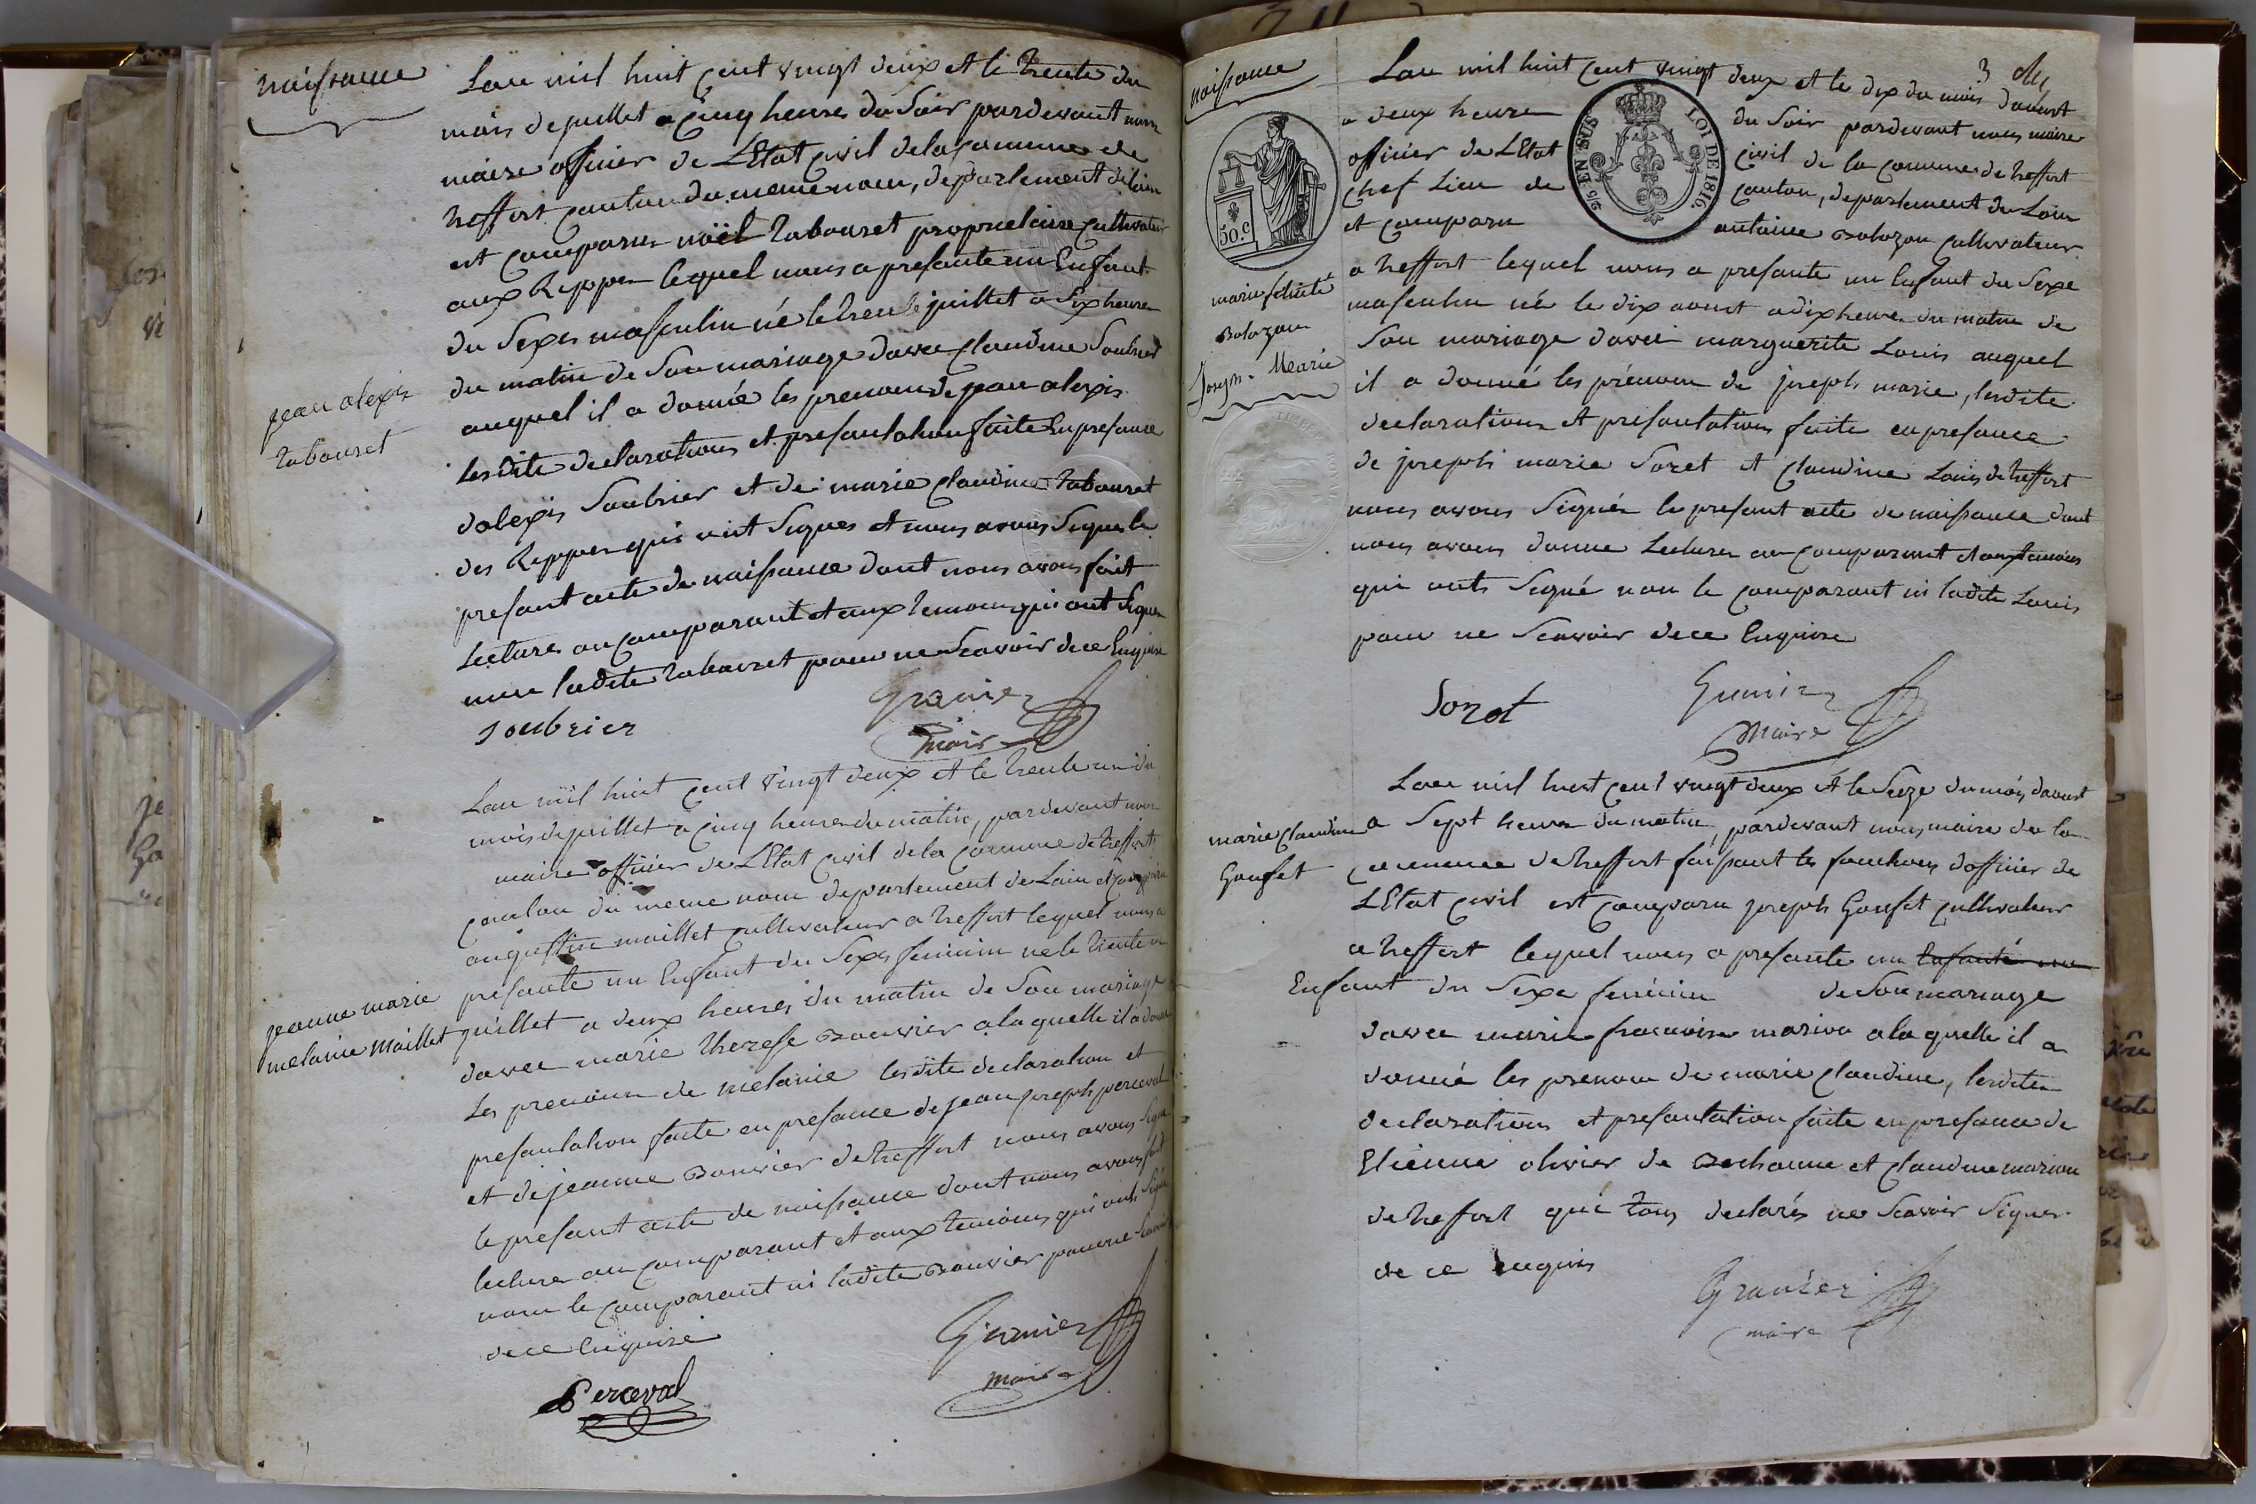 naissance
Lan mil huit cent vingt deux et le trente du
mois de juillet a cinq heures du Soir pardevant nous
maire officier de LEtat civil de la commune de
treffort canton du meme nom, departement de lain
est comparu noël tabouret proprietaire cultivateur
aux Rippes lequel nous a presante un Enfant
du Sexe masculin né le trente juillet a Six heures
du matin de Son mariage davec claudine Soubrier
auquel il a donné les prenom de jean alexis
lesdite declarations et presantation faite En presance
dalexis Soubrier et de marie claudine tabouret
des Rippes qui ont Signes et nous avons Signés le
presant acte de naissance dont nous avons fait
Lecture au comparant et aux temoins qui ont Signe
non ladite tabouret pour ne Scavoir de ce Enquise
jean alexis
tabouret
Soubrier
Granier
maire
Lan mil huit cent vingt deux et le trente un du
mois de juillet a cinq heures du matin, pardevant nous
maire officier de LEtat civil de la commune de treffort
canton du meme nom departement de Lain et comparu
augustin maillet cultivateur a treffort lequel nous a
presante un Enfant du Sexe feminin né le trente un
juillet a deux heures du matin de Son mariage
davec marie therese Bouvier a laquelle il a donné
Les prenom de melanie lesdite declaration et
presantation faite en presance de jean joseph perceval
et de jeanne Bouvier de treffort nous avons Signé
le presant acte de naissance dont nous avons fait
lecture au comparant et aux temoins qui onts Signé
non le comparant ni ladite Bouvier pour ne Scavoir
de ce Enquise
jeanne marie
melanie Maillet
Perceval
Granier
maire
3
naissance
Lan mil huit cent vingt deux et le dix du mois daoust
a deux heure du Soir pardevant nous maire
officier de LEtat civil de la commune de treffort
chef Lieu de canton, departement de Lain
et comparu antoine Bolozon cultivateur
a treffort lequel nous a presante un Enfant du Sexe
masculin né le dix aoust a dix heure du matin de
Son mariage davec marguerite Louis auquel
il a donné les prénom de joseph marie, lesdite
declarations et presantations faite en presance
de joseph marie Soret et claudine Louis de treffort
nous avons Signés le presant acte de naissance dont
nous avons donne Lecture au comparant et aux temoins
qui onts Signé non le comparant ni ladite Louis
pour ne Scavoir de ce Enquise
50.c
EN SUS
LOI DE 1816.
marie felicité
Bolozon
Joseph-Marie
Soret
Granier
Maire
Lan mil huit cent vingt deux et le Seize du mois daoust
a Sept heures du matin, pardevant nous maire de la
commune de treffort faissant les fonctions dofficier de
LEtat civil est comparu joseph Goufet cultivateur
a treffort lequel nous a presante un
Enfant du Sexe feminin de Son mariage
davec marie francoise marion a laquelle il a
donné les prenom de marie claudine, lesdites
declarations et presantation faite en presance de
Etienne olivier de Bechanne et claudine marion
de treffort qui tous declarés ne Scavoir Signer
de ce enquis
marie claudine
Goufet
Granier
maire